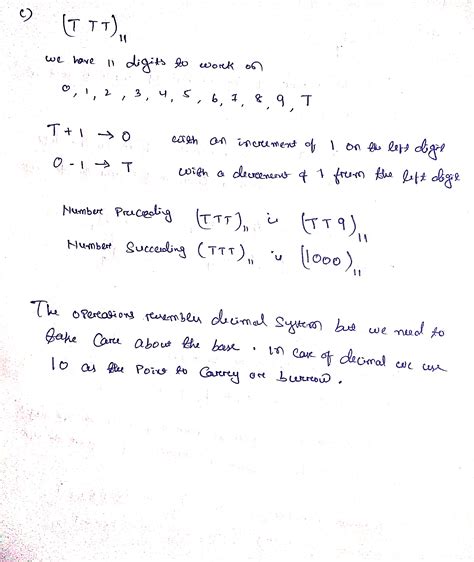 c) (T T T)11
we have 11 digits to work on
0, 1, 2, 3, 4, 5, 6, 7, 8, 9, T
T + 1 → 0 with an increment of 1 on the left digit
0 - 1 → T with a decrement of 1 from the left digit
Number Preceeding (TTT)11 is (TT9)11
Number Succeeding (TTT)11 is (1000)11
The operations resembles decimal System but we need to
take Care about the base. In case of decimal we use
10 as the Point to Carrey or burrow.